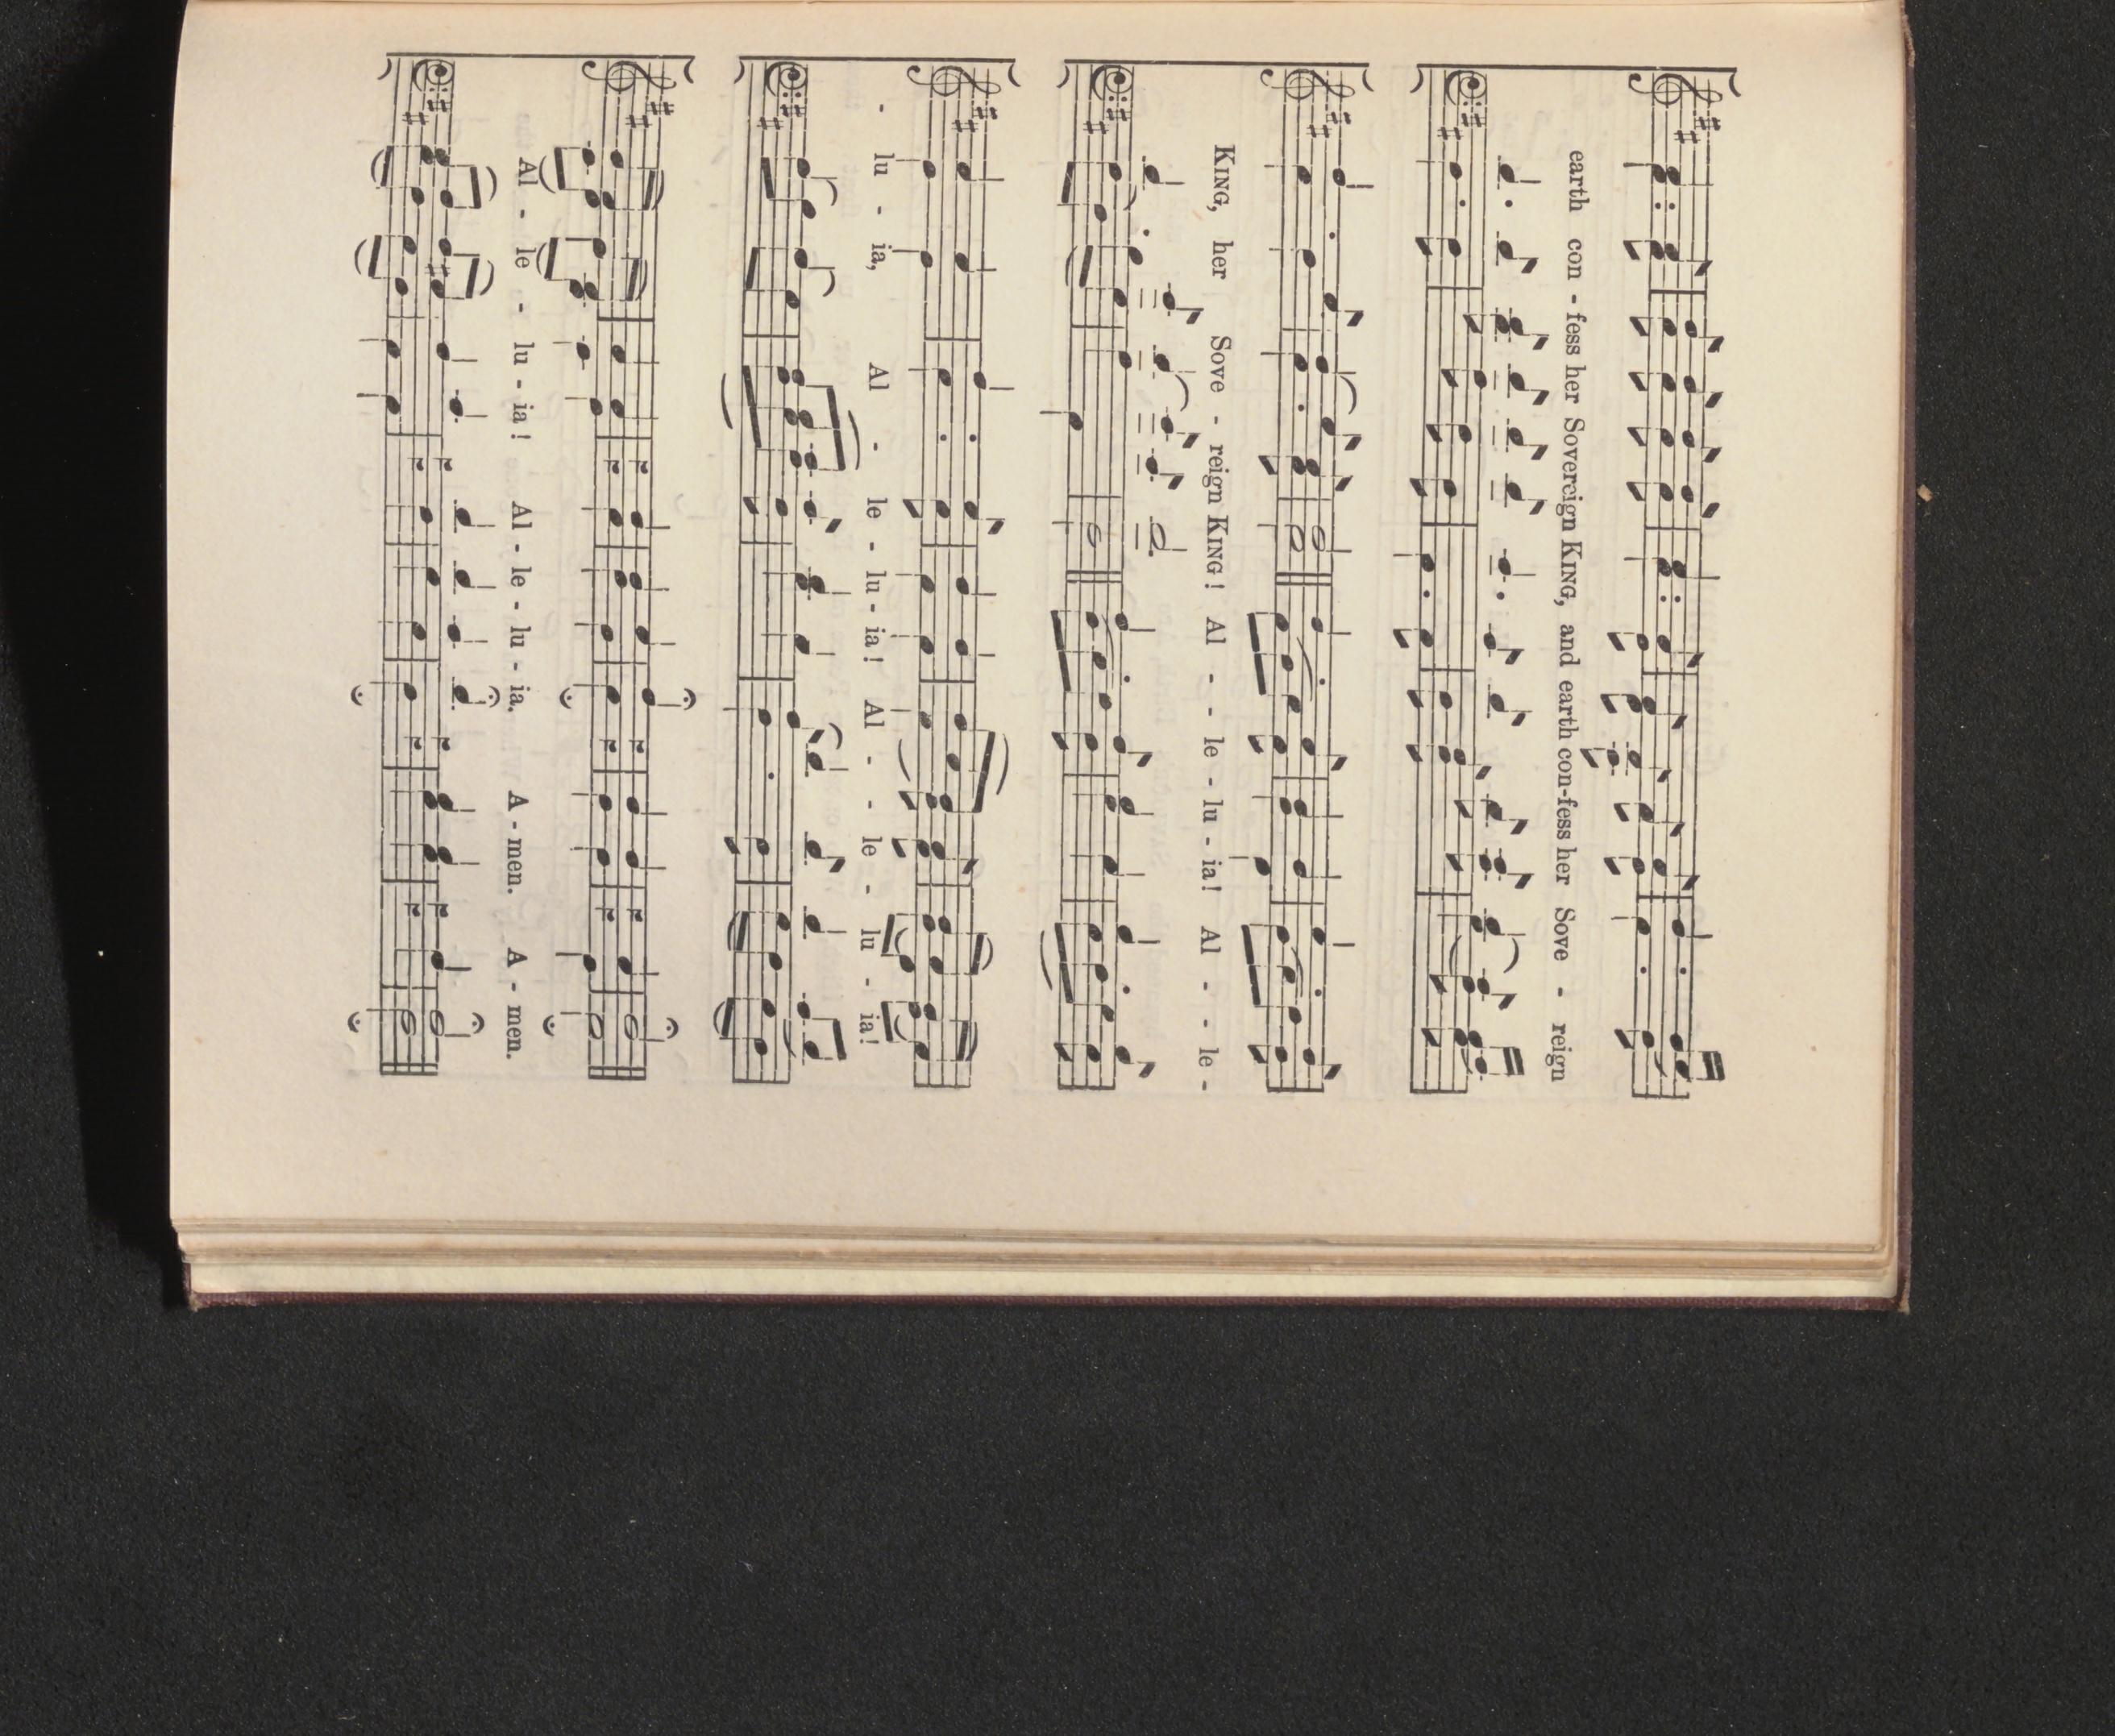 earth con - fess her Sovereign KING, and earth con-fess her Sove - reign
KING, her Sove - reign KING! Al - - le - lu - ia! Al - - le -
- lu - ia, Al - le - lu - ia! Al - - le - lu - ia!
Al - le - lu - ia! Al - le - lu - ia. A - men. A - men.